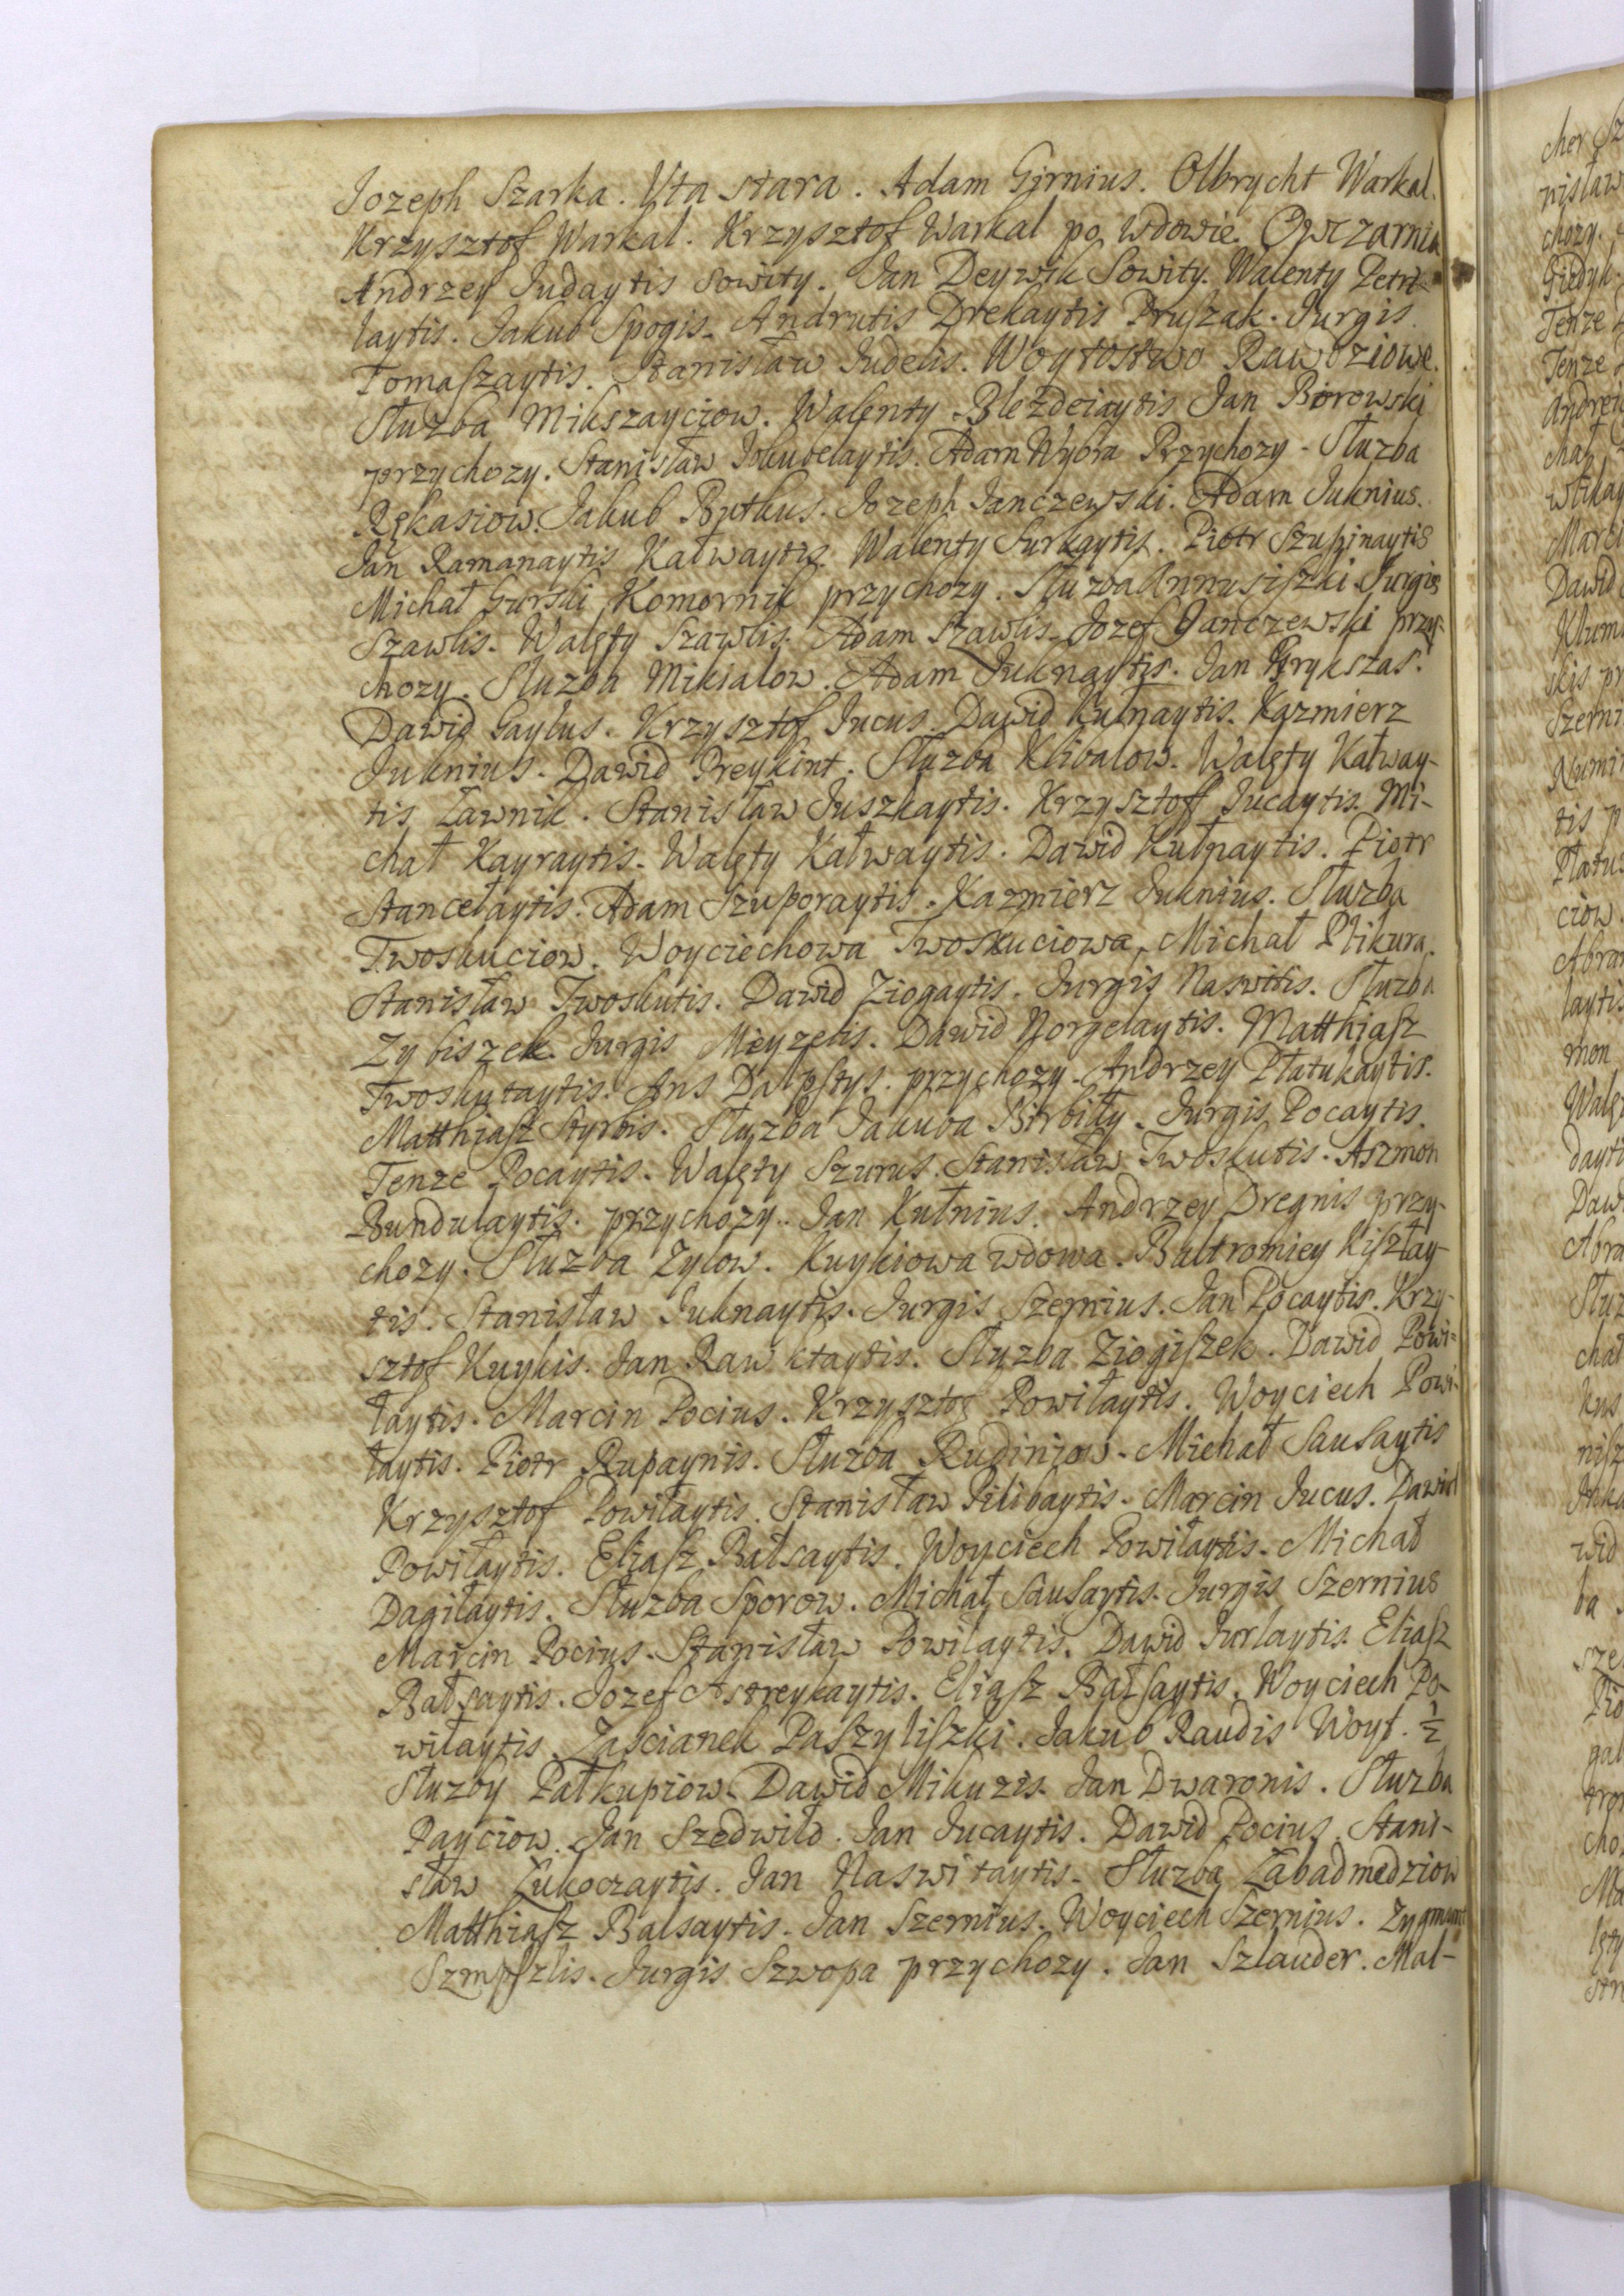 Jozeph Szarka. Uta stara. Adam Girnius. Olbrycht Warkal.
Krzysztof Warkal. Krzysztof Warkal po wdowie. Owczarnia
Andrzey Judaytis sowity. Jan Deywik Sowity. Walenty Petre-
laytis. Jakub Spogis. Andrutis Drekaytis Pruszak. Jurgis
Tomaszaytis. Stanisław Judelis. Woytostwo Rawdziowe.
Słuzba Mikszayciow. Walenty Bleżdeiaytis Jan Borowski
przychozy. Stanisław Jokubelaytis. Adam Wybra Przychozy. Słuzba
Rękasiow. Jakub Butkus. Jozeph Janczewski. Adam Juknius.
Jan Ramanaytis Kałwaytis. Walenty Surkaytis. Piotr Szuszinaytis
Michał Gurski Komornik przychozy. Słuzba Annusiszki Jurgis
Szawlis. Walęty Szawlis. Adam Szawlis. Jozef Janczewski przy-
chozy. Słuzba Mikialow. Adam Juknaytis. Jan Grykszas.
Dawid Gaylus. Krzysztof Jucus. Dawid Kułnaytis. Kazmierz
Juknius. Dawid Preykint. Słuzba Klibalow. Walęty Kałway-
tis Ławnik. Stanisław Juszkaytis. Krzysztoff Jucaytis. Mi-
chał Kayraytis. Walęty Kałwaytis. Dawid Kułnaytis. Piotr
Stancełaytis. Adam Szuporaytis. Kazmierz Juknius. Słuzba
Twoskuciow. Woyciechowa Twoskuciowa. Michał Plikura.
Stanisław Twoskutis. Dawid Ziogaytis. Jurgis Naswitis. Słuzba
Zybiszek. Jurgis Mieyzelis. Dawid Norgelaytis. Matthiasz
Twoskutaytis. Ans przychozy. Andrzey Płatukaytis.
Matthiasz Styrbis. Słuzba Jakuba Birbiły. Jurgis Pocaytis.
Tenze Pocaytis. Walęty Szurus. Stanisław Twoskutis. Aszmon
Bundulaytis. przychozy. Jan Kułnius. Andrzey Dregnis przy-
chozy. Słuzba Zylow. Kuykiowa wdowa. Bałtromiey Kiszłay-
tis. Stanisław Juknaytis. Jurgis Szernius. Jan Pocaytis. Krzy-
sztof Kuykis. Jan Rawktaytis. Słuzba Ziogiszek. Dawid Powi-
łaytis. Marcin Pocius. Krzysztof Powiłaytis. Woyciech Powi-
łaytis. Piotr Rupaynis. Słuzba Rudiniow. Michał Sausaytis
Krzysztof Powiłaytis. Stanisław Pilibaytis. Marcin Jucus. Dawid
Powiłaytis. Eliasz Bałsaytis. Woyciech Powiłaytis. Michał
Dagiłaytis. Słuzba Sporow. Michał Sausaytis. Jurgis Szernius
Marcin Pocius. Stanisław Powiłaytis. Dawid Jurlaytis. Eliasz
Bałsaytis. Jozef Astreykaytis. Eliasz Bałsaytis. Woyciech Po-
wiłaytis. Zascianek Paszyliszki. Jakub Raudis Woyt. ½
Słuzby Pałkupiow. Dawid Mikuzis. Jan Dwaronis. Słuzba
Payciow. Jan Szedwiłd. Jan Jucaytis. Dawid Pocius. Stani-
sław Łukoczaytis. Jan Naswitaytis. Słuzba Łabadmedziow
Matthiasz Balsaytis. Jan Szernius. Woyciech Szernius. Zygmunt
Jurgis Szwopa przychozy. Jan Szlauder. Mal-